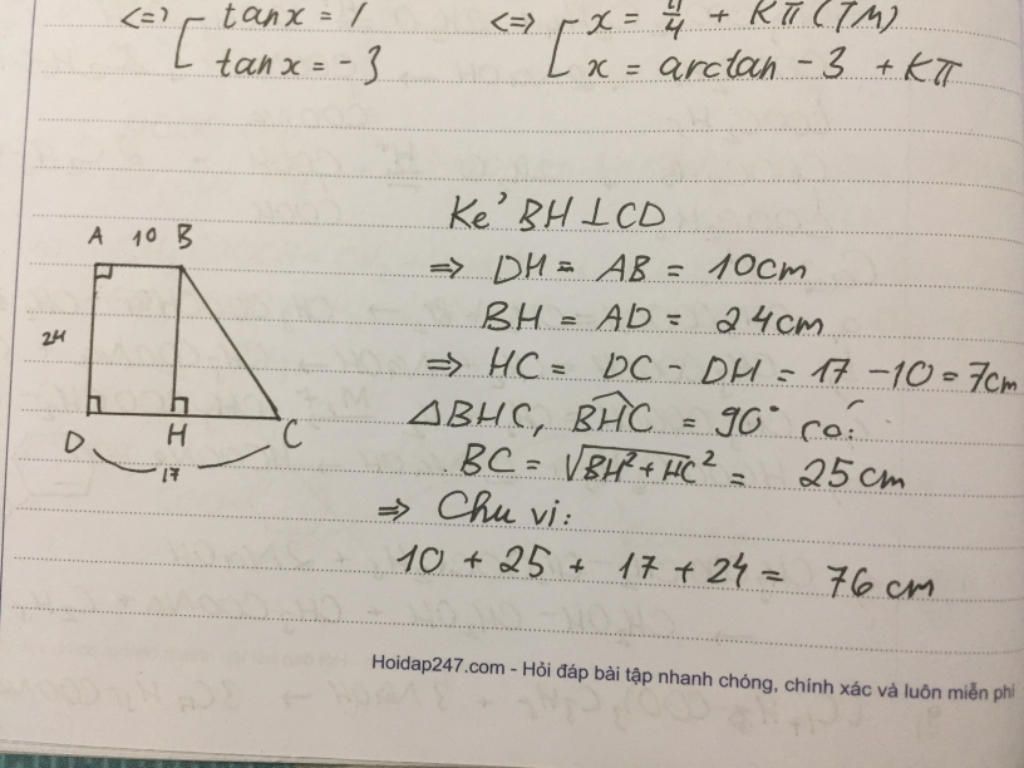 <=> [ tanx = 1 <=> [ x = π/4 + Kπ (TM)
tanx = -3 x = arctan -3 + Kπ
Kẻ BH ⊥ CD
=> DH = AB = 10cm
BH = AD = 24cm
=> HC = DC - DH = 17 - 10 = 7cm
ΔBHC, \widehat{BHC} = 90° có:
BC = √(BH² + HC²) = 25cm
=> Chu vi:
10 + 25 + 17 + 24 = 76 cm
A 10 B
24
D H C
17
Hoidap247.com - Hỏi đáp bài tập nhanh chóng, chính xác và luôn miễn phí